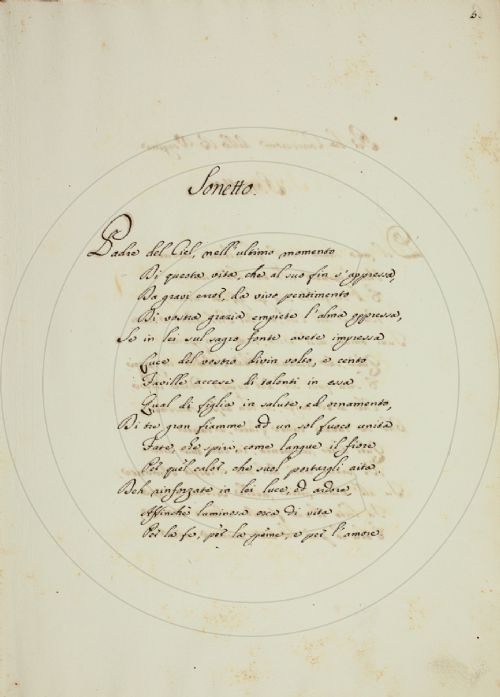 Sonetto.
Padre del Ciel, nell'ultimo momento
Di questa vita, che al suo fin s'appressa,
Da gravi error, da vivo pentimento
Di vostra grazia empiete l'alma oppressa,
Se in lei sul sagro fonte avete impressa
Luce del vostro divin volto, e cento
Faville accese di talenti in essa
Qual di figlia in salute, ed ornamento,
Di tre gran fiamme ad un sol fuoco unita
Fate, che spiri, come langue il fiore
Per quel calor, che suol portargli aita.
Deh rinforzate in lei luce, ed ardore,
Affinchè luminosa esca di vita
Per la fe, per la speme, e per l'amore